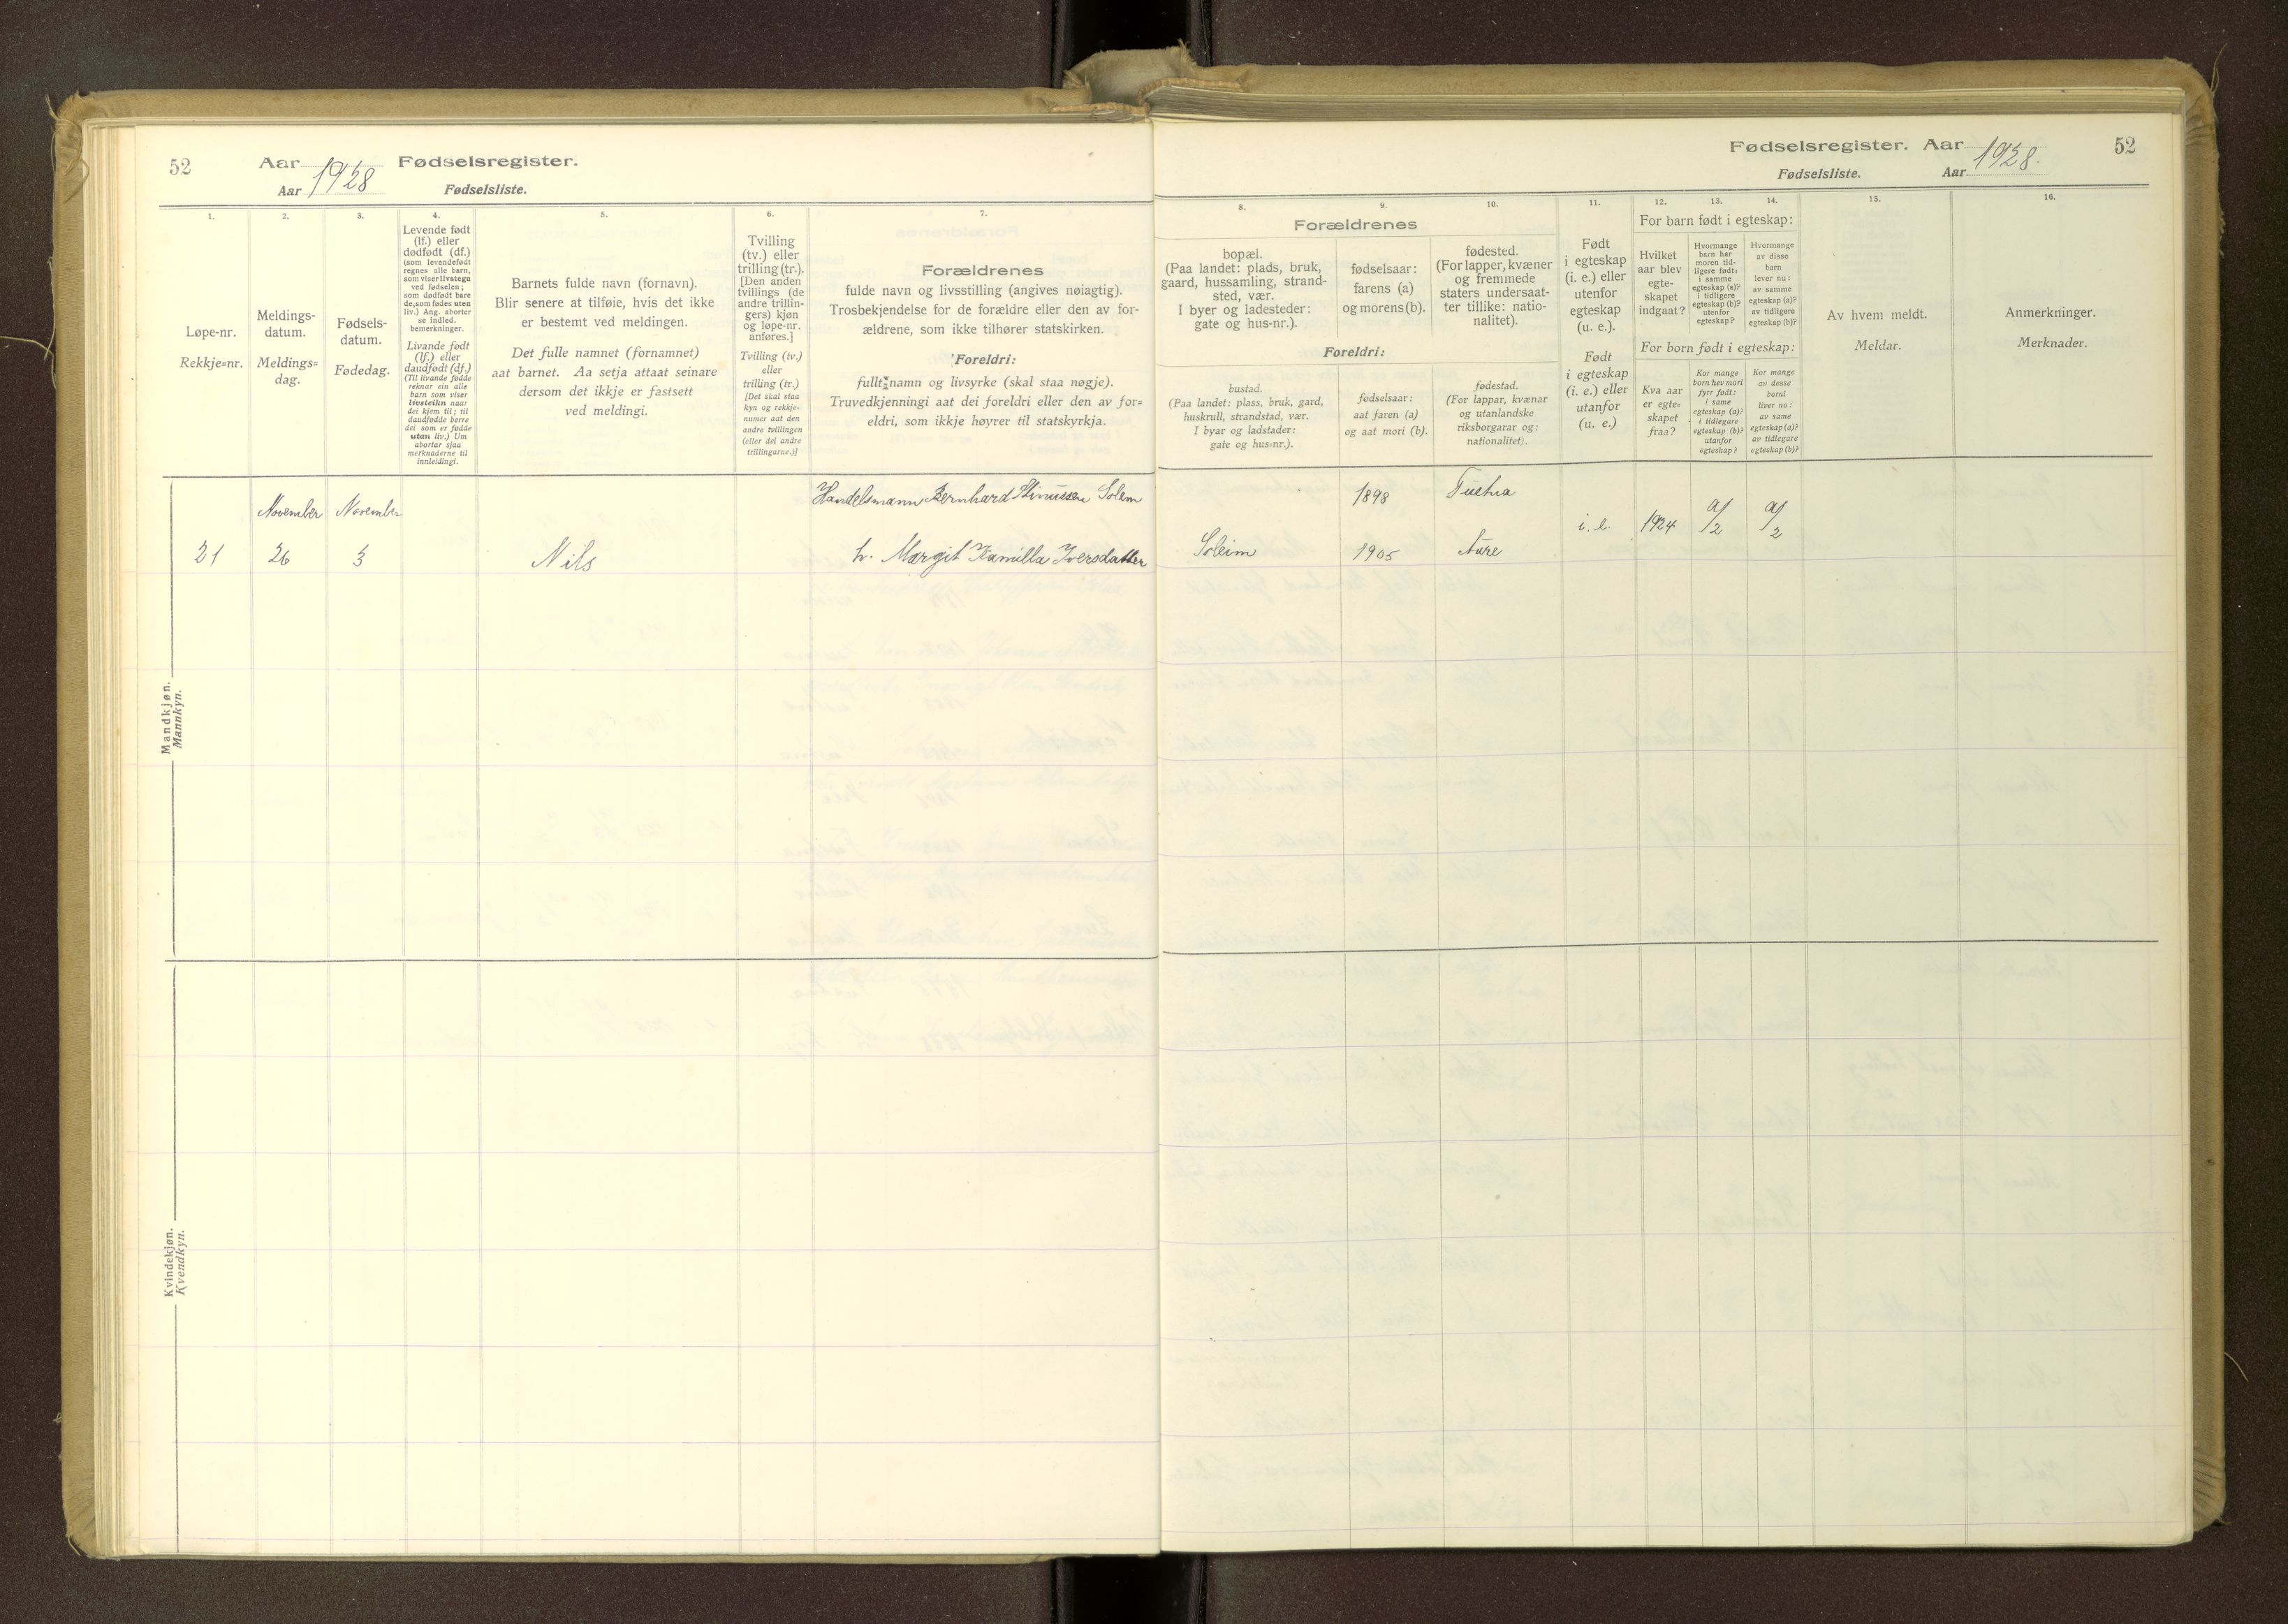 52
Aar 1928 Fødselsregister.
Aar Fødselsliste.
1.
Løpe-nr.
Rekkje=nr.
2.
Meldings-
datum.
Meldings=
dag.
3.
Fødsels-
datum.
Fødedag.
4.
Levende født
(lf.) eller
dødfødt (df.)
(som levendefødt
regnes alle barn,
som viser livstegn
ved fødselen;
som dødfødt bare
de, som fødes uten
liv.) Ang. aborter
se indled.
bemerkninger.
Livande født
(lf.) eller
daudfødt (df.)
(Til livande fødde
reknar ein alle
barn som viser
livsteikn naar
dei kjem til; til
daudfødde berre
dei som er fødde
utan liv.) Um
abortar sjaa
merknaderne til
innleidingi.
5.
Barnets fulde navn (fornavn).
Blir senere at tilføie, hvis det ikke
er bestemt ved meldingen.
Det fulle namnet (fornamnet)
aat barnet. Aa setja attaat seinare
dersom det ikkje er fastsett
ved meldingi.
6.
Tvilling
(tv.) eller
trilling (tr.).
[Den anden
tvillings (de
andre trillin-
gers) kjøn
og løpe-nr.
anføres.]
Tvilling (tv.)
eller
trilling (tr.)
[Det skal staa
kyn og rekkje-
numer aat den
andre tvillingen
(eller dei andre
trillingarne.)]
7.
Forældrenes
fulde navn og livsstilling (angives nøiagtig).
Trosbekjendelse for de forældre eller den av for-
ældrene, som ikke tilhører statskirken.
Foreldri:
fullt namn og livsyrke (skal staa nøgje).
Truvedkjenningi aat dei foreldri eller den av for=
eldri, som ikkje høyrer til statskyrkja.
Mandkjøn.
Mannkyn.
November November Handelsmann Bernhard Stinussen Solem
21 26 3 Nils h. Margit Kamilla Iversdatter
Kvindekjøn.
Kvendkyn.
Fødselsregister. Aar 1928. 52
Fødselsliste. Aar
Forældrenes
8.
bopæl.
(Paa landet: plads, bruk,
gaard, hussamling, strand-
sted, vær.
I byer og ladesteder:
gate og hus-nr.).
9.
fødselsaar:
farens (a)
og morens (b).
10.
fødested.
(For lapper, kvæner
og fremmede
staters undersaat-
ter tillike: natio-
nalitet).
Foreldri:
bustad.
(Paa landet: plass, bruk, gard,
huskrull, strandstad, vær.
I byar og ladstader:
gate og hus=nr.).
fødselsaar:
aat faren (a)
og aat mori (b).
fødestad.
(For lappar, kvænar
og utanlandske
riksborgarar og:
nationalitet).
11.
Født
i egteskap
(i. e.) eller
utenfor
egteskap
(u. e.).
Født
i egteskap
(i. e.) eller
utanfor
(u. e.)
For barn født i egteskap:
12.
Hvilket
aar blev
egte-
skapet
indgaat?
13.
Hvormange
barn har
moren tid-
ligere født:
i samme
egteskap (a)?
i tidligere
egteskap (b)?
utenfor
egteskap?
14.
Hvormange
av disse
barn
lever nu:
av samme
egteskap (a)?
av tidligere
egteskap (b)?
For born født i egteskap:
Kva aar
er egte=
skapet
fraa?
Kor mange
born hev mori
fyrr født:
i same
egteskap (a)?
i tidlegare
egteskap (b)?
utanfor
egteskap?
Kor mange
av desse
borni
liver no:
av same
egteskap (a)?
av tidlegare
egteskap (b)?
15.
Av hvem meldt.
Meldar.
16.
Anmerkninger.
Merknader.
1898 Tustna
i. e. 1924 a/2 a/2
Soleim 1905 Aure